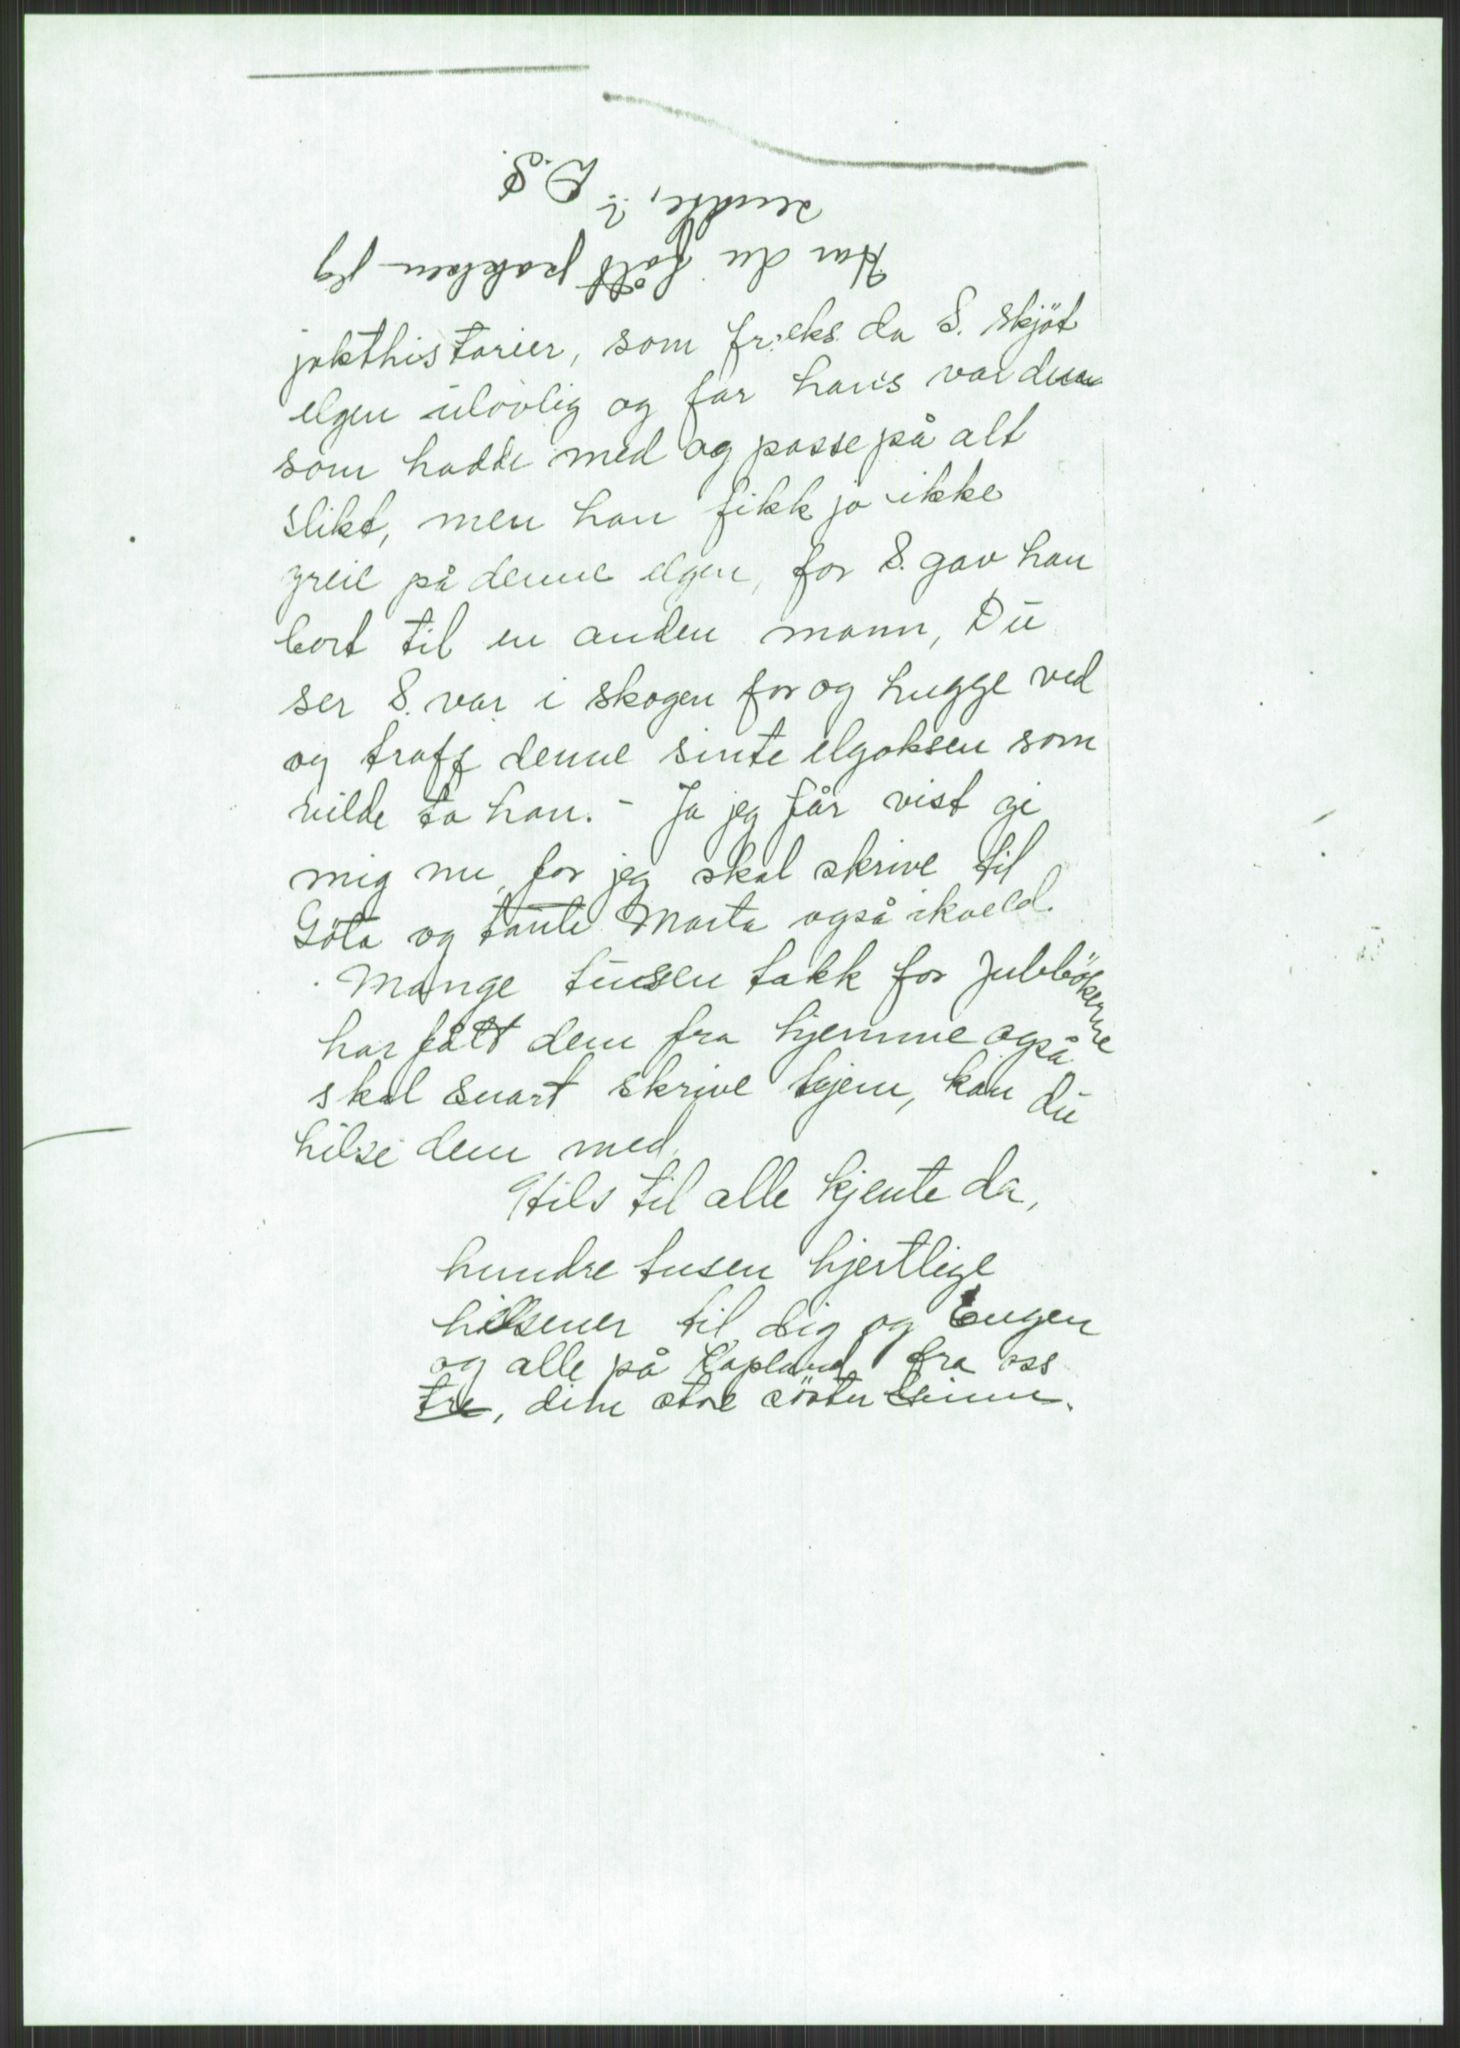 Har du fått pakken jeg
sendte, ? D.S.
jakthistorier, som fr.eks. da S. skjöt
elgen ulovlig og far hans var den
som hadde med og passe på alt
slikt, men han fikk jo ikke
greie på denne elgen, for S. gav han
bort til en anden mann, Du
ser S. var i skogen for og hugge ved
og traff denne sinte elgoksen som
vilde ta han. - Ja jeg får vist gi
mig nu, for jeg skal skrive til
Göta og tante Marta også ikveld.
Mange tusen takk for Julebökerne
har fått dem fra hjemme også
skal snart skrive hjem, kan du
hilse dem med.
Hils til alle kjente da,
hundre tusen hjertlige
hilsener til dig og Eugen
og alle på Lapland fra oss
tre, din store söster